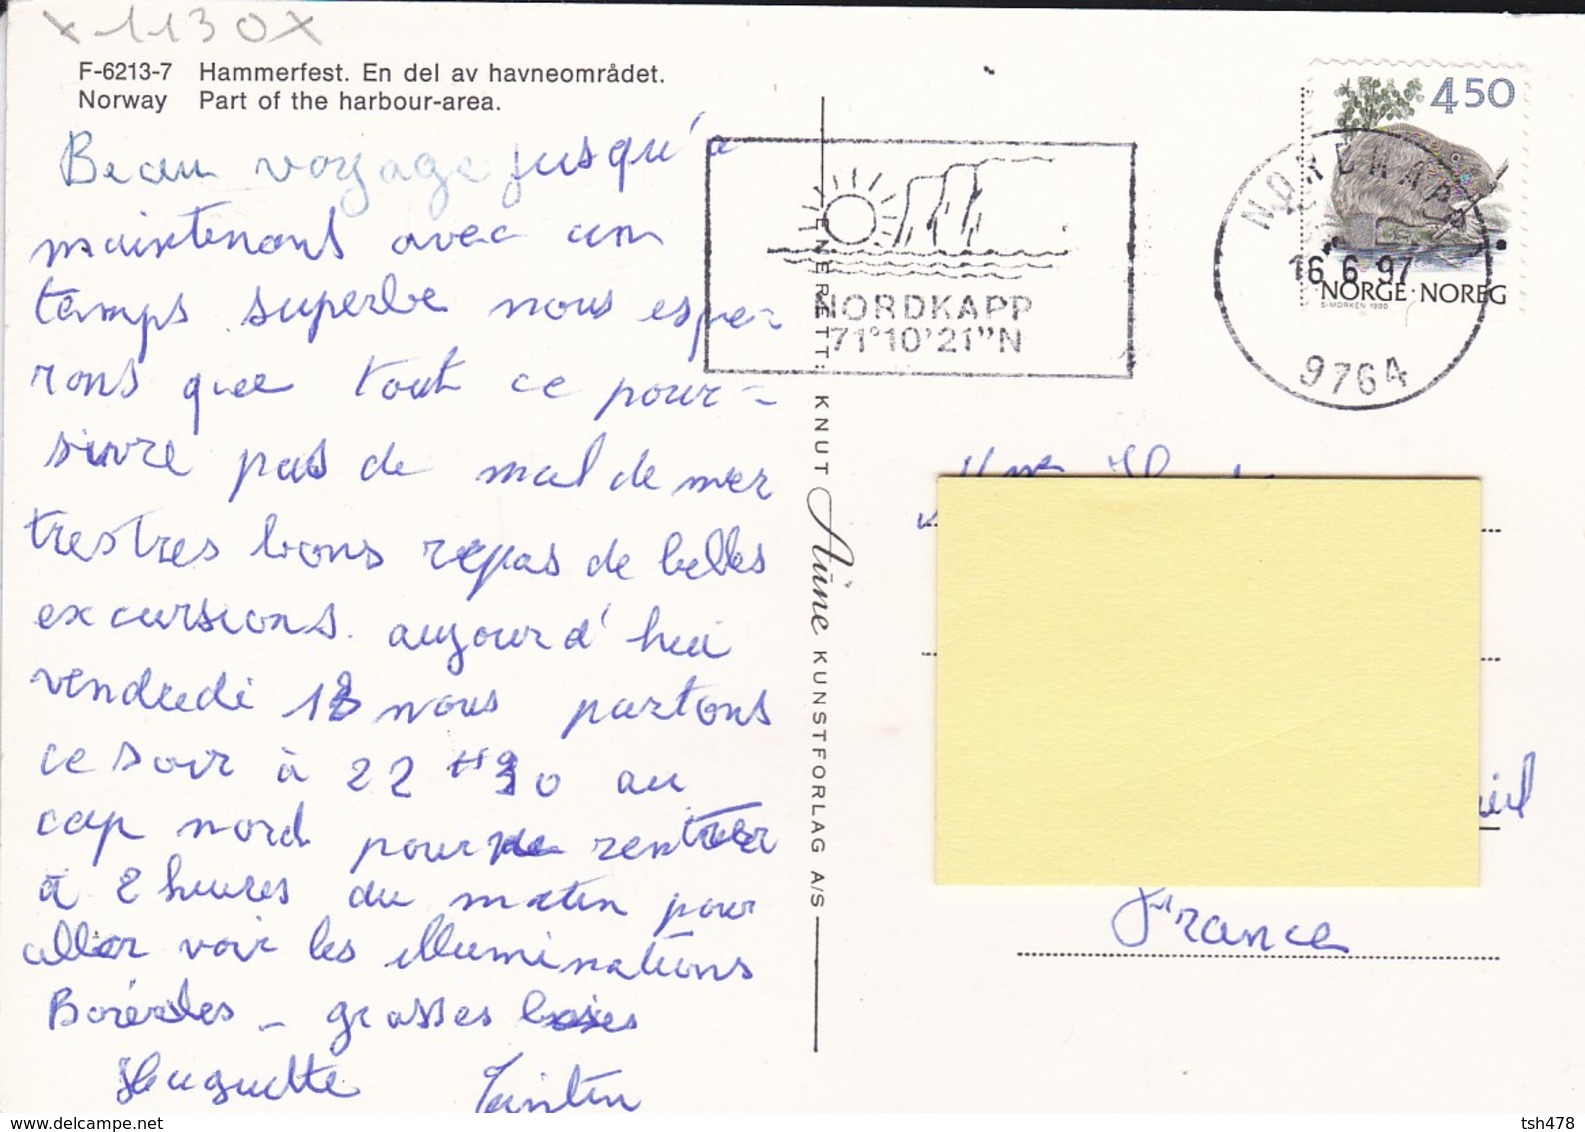 x 1130 x
F-6213-7 Hammerfest. En del av havneområdet.
Norway Part of the harbour-area.
Beau voyage jusqu'à
maintenant avec un
temps superbe nous espe
rons que tout ce pour-
suivre pas de mal de mer
tres tres bons repas de belles
excursions. aujourd'hui
vendredi 13 nous partons
ce soir à 22 H 30 au
cap nord pour rentrer
à 2 heures du matin pour
aller voir les illuminations
Boréales - grosses bises
Huguette Tintin
ENERETT: KNUT Aüne KUNSTFORLAG A/S
NORDKAPP
71°10'21"N
450
NORDKAPP
16.6.97
9764
NORGE·NOREG
S·MORKEN 1990
Mme
France
www.delcampe.net
tsh478